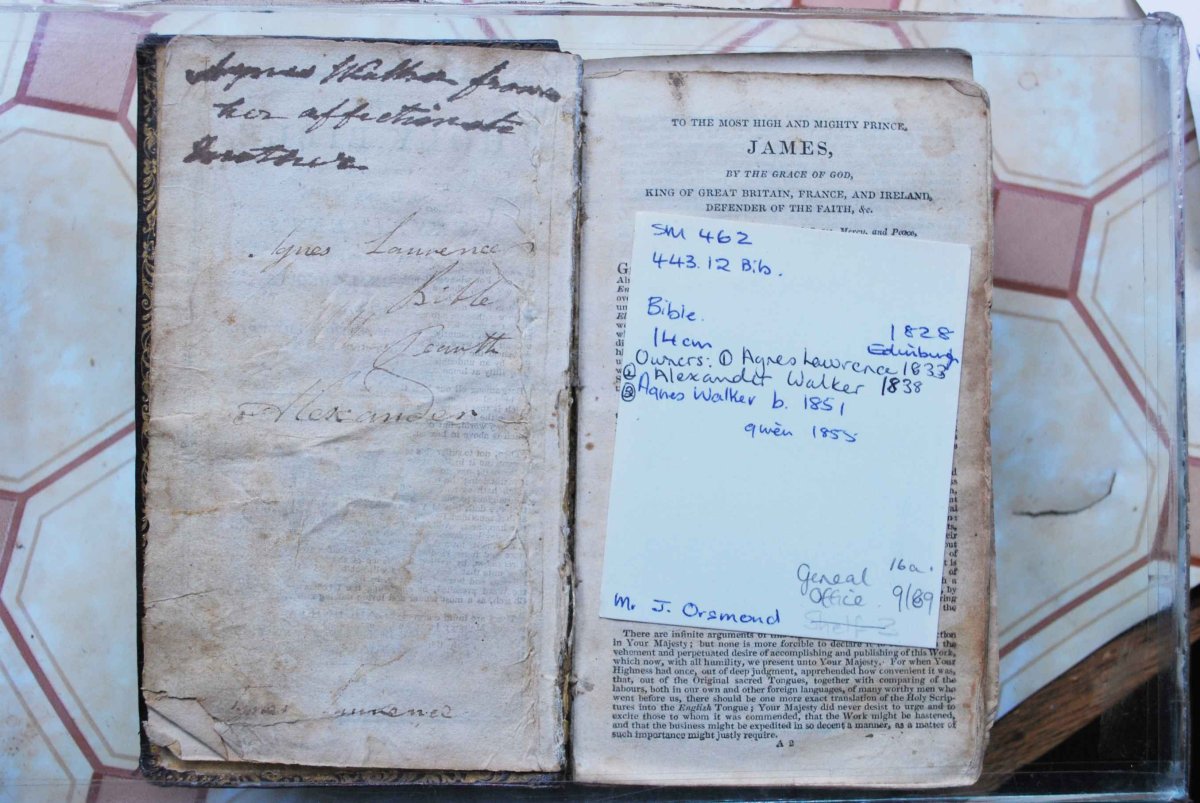 Agnes Walker from
her affectionate
Agnes Lawrence
Bible
Alexander
Agnes Lawrence
TO THE MOST HIGH AND MIGHTY PRINCE,
JAMES,
BY THE GRACE OF GOD,
KING OF GREAT BRITAIN, FRANCE, AND IRELAND,
DEFENDER OF THE FAITH, &c.
Mercy, and Peace,
SM 462
443.12 Bib.
Bible.
1828
14cm
Edinburgh
Owners: ① Agnes Lawrence 1833
② Alexander Walker 1838
③ Agnes Walker b. 1851
given 1855
16a.
General
Office 9/89
Mr J. Orsmond
There are infinite arguments of
in Your Majesty; but none is more forcible to declare it
vehement and perpetuated desire of accomplishing and publishing of this Work,
which now, with all humility, we present unto Your Majesty. For when Your
Highness had once, out of deep judgment, apprehended how convenient it was,
that, out of the Original sacred Tongues, together with comparing of the
labours, both in our own and other foreign languages, of many worthy men who
went before us, there should be one more exact translation of the Holy Scrip-
tures into the English Tongue; Your Majesty did never desist to urge and to
excite those to whom it was commended, that the Work might be hastened,
and that the business might be expedited in so decent a manner, as a matter of
such importance might justly require.
A 2